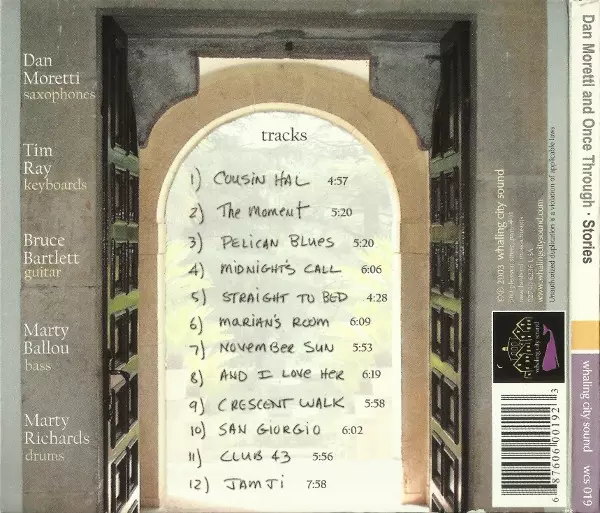 Dan
Moretti
saxophones
Tim
Ray
keyboards
Bruce
Bartlett
guitar
Marty
Ballou
bass
Marty
Richards
drums
tracks
1) COUSIN HAL 4:57
2) The MomenT 5:20
3) PELICAN BLUES 5:20
4) MIDNIGHT'S CALL 6:06
5) STRAIGHT TO BED 4:28
6) MARIAN'S ROOM 6:09
7) NOVEMBER SUN 5:53
8) AND I LOVE HER 6:19
9) CRESCENT WALK 5:58
10) SAN GIORGIO 6:02
11) CLUB 43 5:56
12) JAMJI 7:58
©℗ 2003 whaling city sound
www.whalingcitysound.com
Unauthorized duplication is a violation of applicable laws
whaling city sound
6 87606 00192 3
Dan Moretti and Once Through · Stories
whaling city sound wcs 019